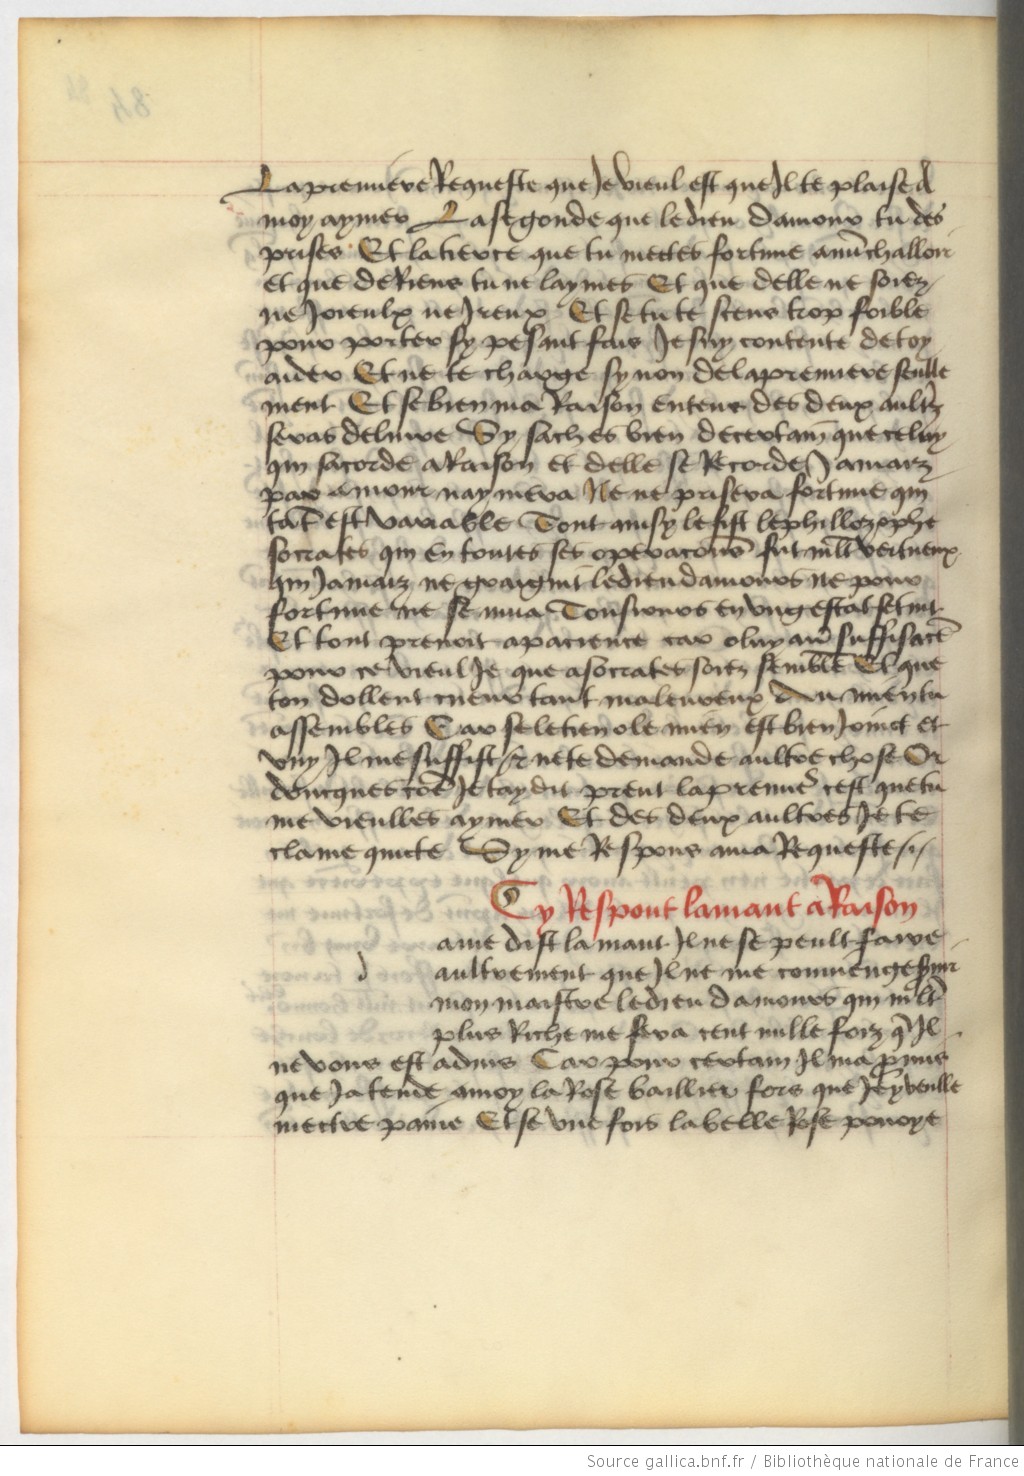 La premiere Requeste que Je vieul est que Il te plaise A
moy aymer La segonde que le dieu damour tu des
prises Et la tierce que tu mettes fortune a nūchalloir
et que de Riens tu ne laymes Et que delle ne soiez
ne Joieulx ne Jreux Et se tu te scens trop foible
pour porter sy pesant fais Je suy contente de toy
aider Et ne te charge sy non de la premiere seulle
ment Et se bien ma Raison enteur des deux aultrz
seras deluire Sy saches bien de certain que celuy
qui sacorde a Raison et delle se Recorde Jamaiz
par amour naymera Ne ne prisera fortune qui
tāt est variable Tout ainsy le fist le phillozophe
socrates qui en toutes ses operacons fut mlt vertueux
qui Jamaiz ne craignit le dieu damours Ne pour
fortune ne se mua Tousiours en ung estat se tint
Et tout prenoit a pacience car o luy avoit suffisāce
pour ce vieul Je que a socrates soiez semble Et que
ton dollent cueur tant maleureux au mien tu
assembles Car se le tien o le mien est bien Joinct et
uny Il me suffist / ne te demande aultre chose Or
doncques cōe Je tay dit prent la premiere cest que tu
me vieulles aymer Et des deux aultres Je te
clame quicte Sy me Respons a ma Requeste
Cy Respont lamant a Raison
d ame dist lamant Il ne se peult faire
aultrement que Il ne me conviengne servir
mon maistre le dieu damours qui mlt
plus Riche me fera cent mille foiz q̄ Il
ne vous est aduis Car pour certain Il ma promis
que Jatende a moy la Rose baillier fors que Je y veulle
mectre paine Et se une fois la belle Rose pouoye
Source gallica.bnf.fr / Bibliothèque nationale de France